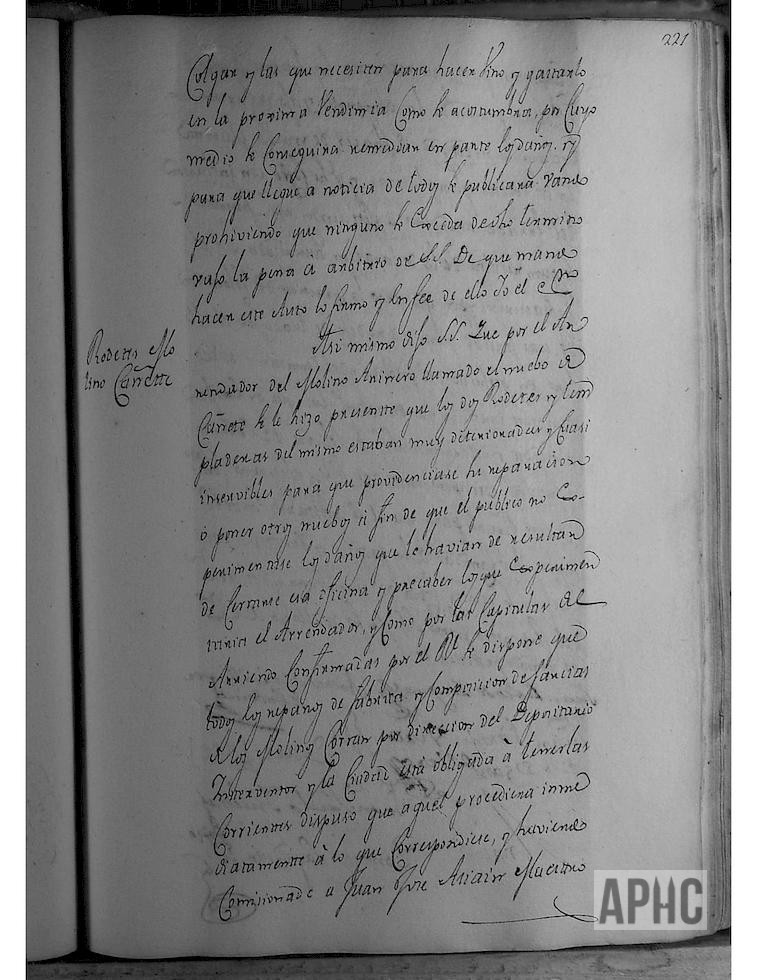 221
Colgar y las que necesiten para hacer vino y gastarlo
en la proxima Vendimia Como se acostumbra, por Cuyo
medio se Conseguira remedian en parte los daños. Y
para que llegue a noticia de todos se publicara Vando
prohiviendo que ninguno se Exceda de dho termino
vajo la pena a arbitrio de S.S. De que mando
hacer este Auto lo firmo y hice fee de ello Yo el
Rodetes Mo
lino Cañette
Asi mismo dijo S.S. Que por el Ar
rendador del Molino Arinero llamado el nuebo de
Cañete se le hizo presente que los dos Rodetes y
del mismo estaban muy deteriorados y Cuasi
inservibles para que providenciase su reparacion
ò poner otros nuebos a fin de que el publico no Ex-
perimentase los daños que le havian de resultar
de Cerrarse esa oficina y precaber los que Experimen
taria el Arrendador, y Como por las Capitulas del
Arriendo Confirmadas por el Rl. se dispone que
todos los reparos de fabrica y Composicion de
de los Molinos Corran por direccion del Depositario
Interventor y la Ciudad está obligada à tenerlas
Corrientes dispuso que aquel procediera inme
diatamente à lo que Correspondiese, y haviendo
Comisionado a Juan Jose Asiain Maestro
APHC